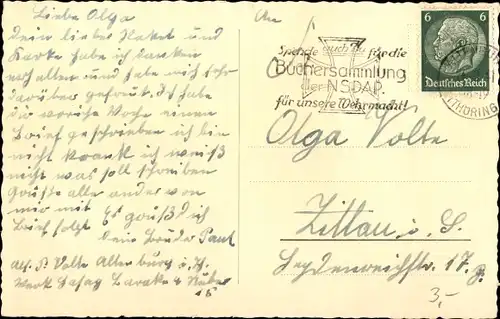 Liebe Olga
Dein liebes Paket und
Karte habe ich danken
erhalten und habe mich sehr
darüber gefreut. Ich habe
die vorige Woche einen
Brief geschrieben ich bin
nicht krank ich weiß
nicht was soll schreiben
Grüße alle andere von
mir mit Es grüßt dich
Brief folgt Dein Bruder Paul
Abs. P. Volte Altenburg i. Th.
Werk Hasag Baracke 4 Stube
15
An
Spende auch Du für die
Büchersammlung
der NSDAP.
für unsere Wehrmacht!
6 6
Deutsches Reich
(THÜRING
Olga Volte
Zittau i. S.
17
3,-